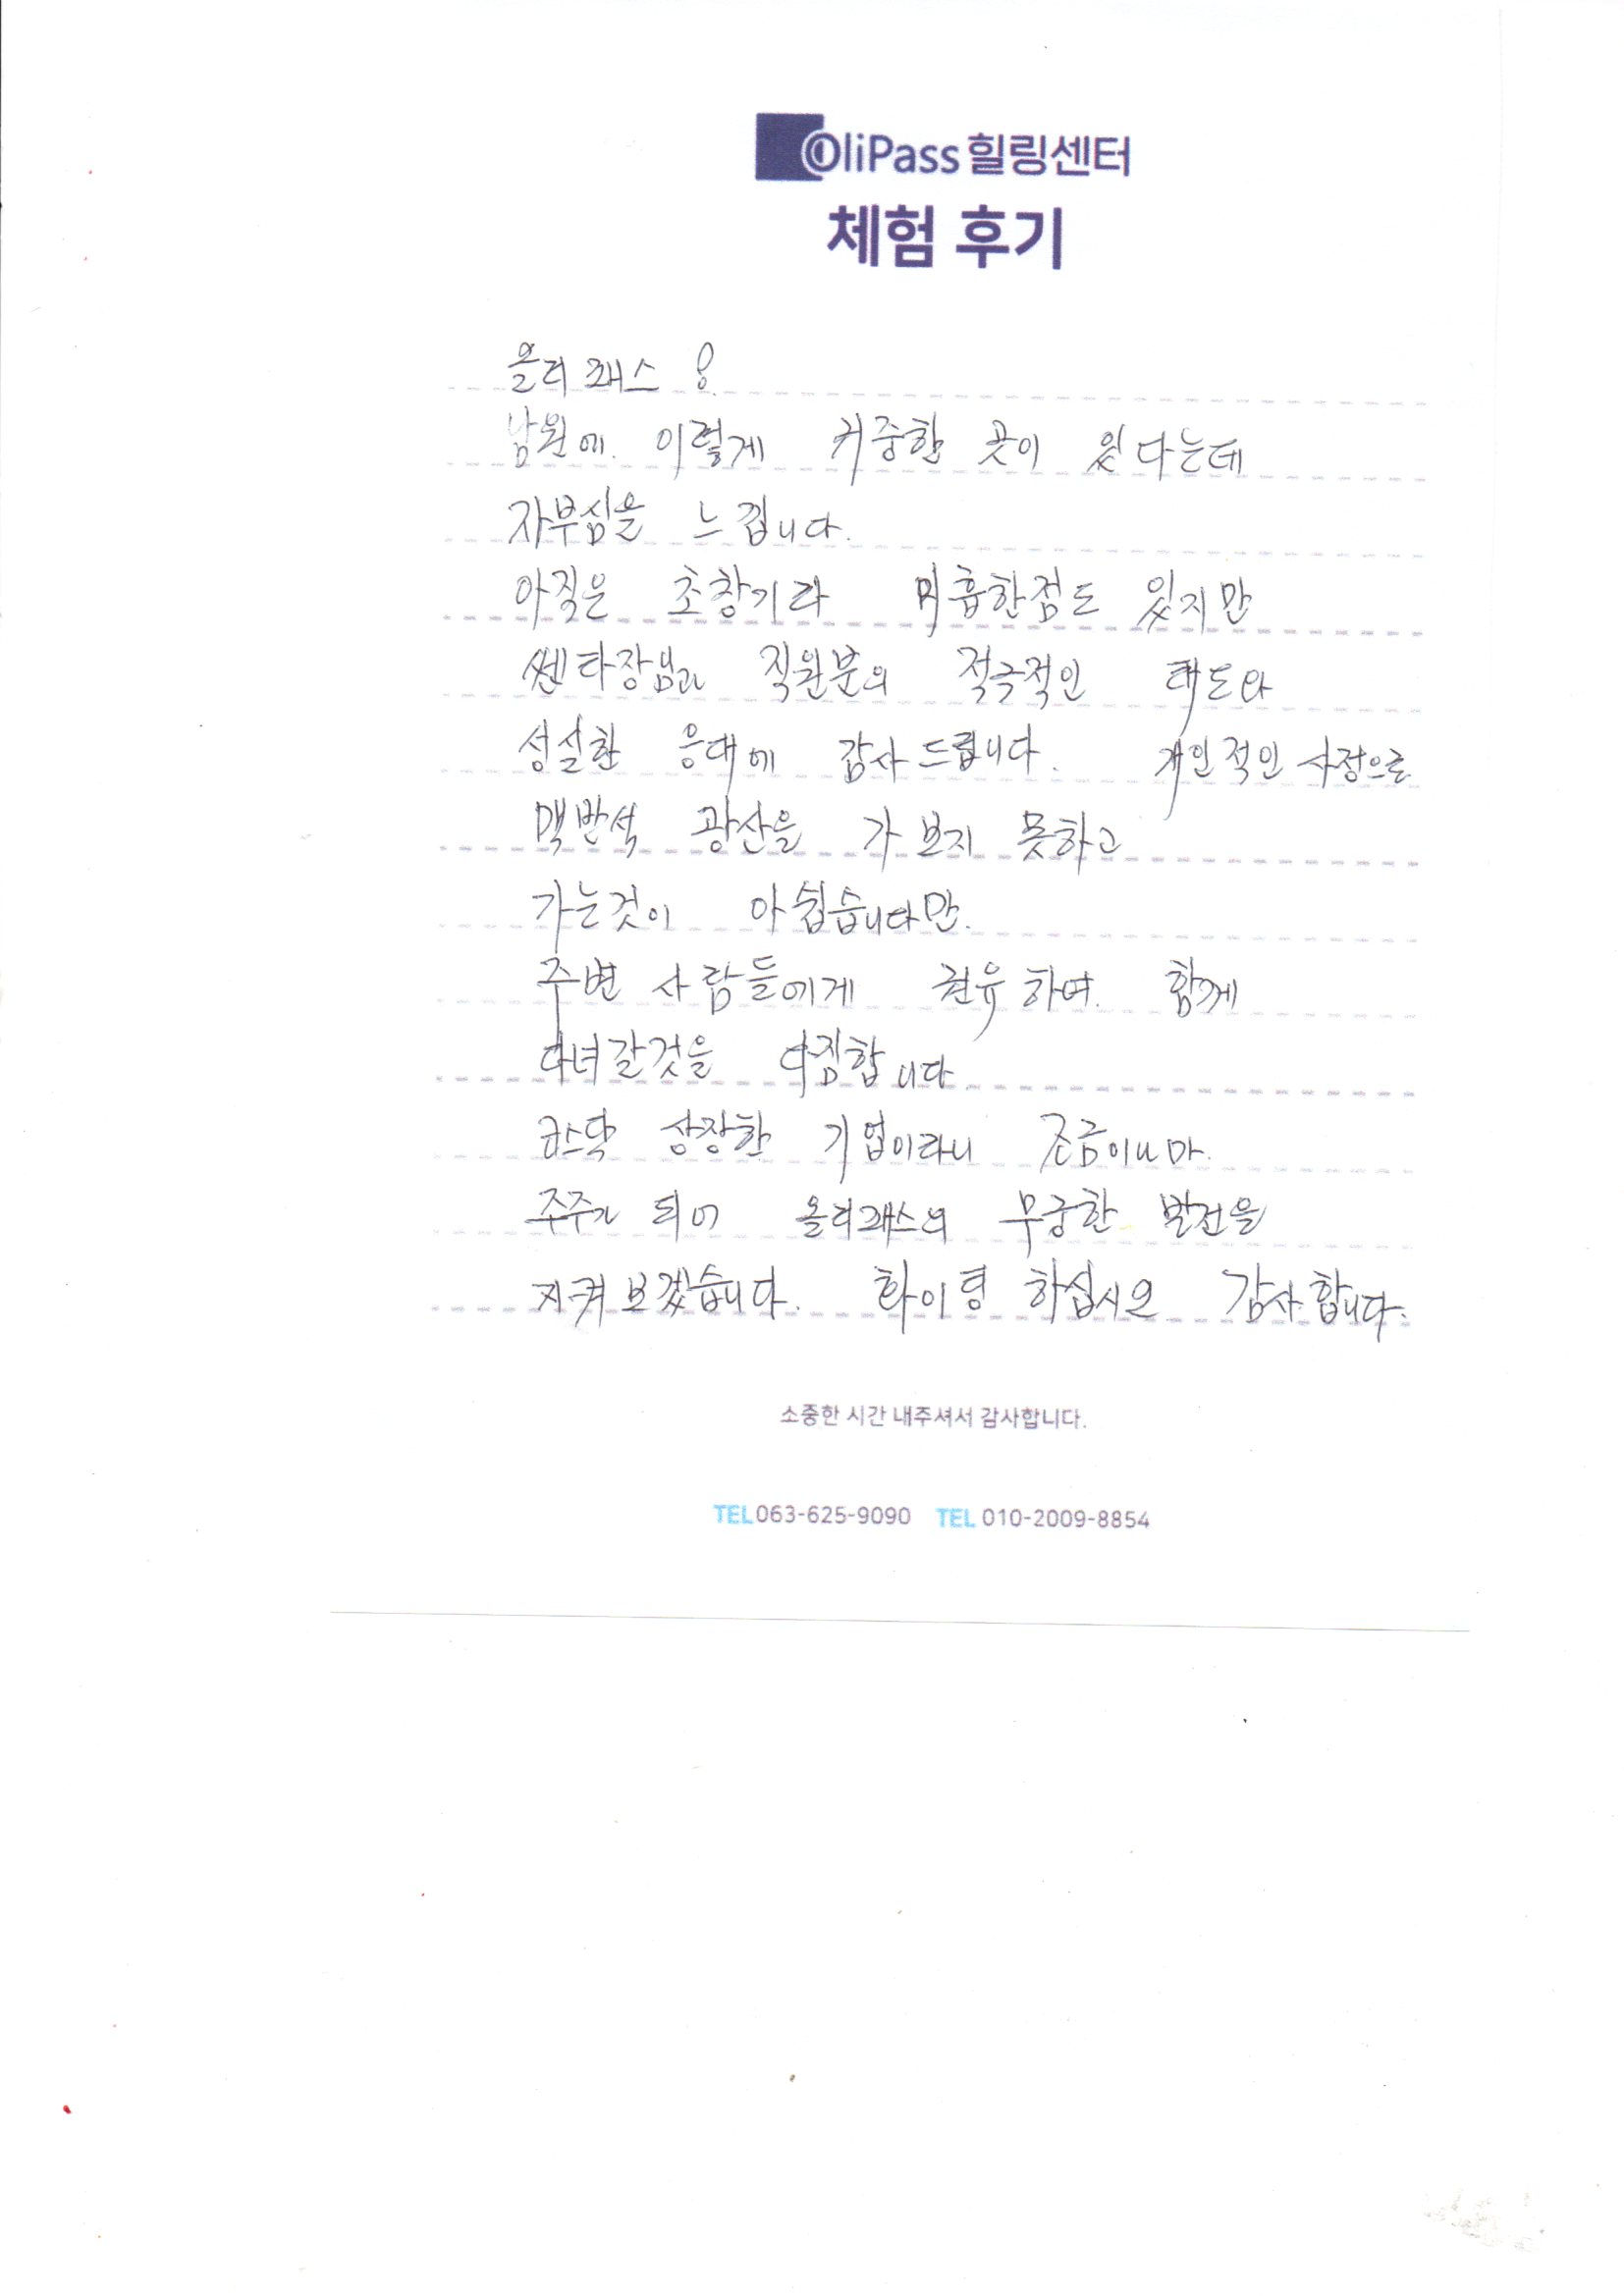 OliPass 힐링센터
체험 후기
올리패스 !
남원에. 이렇게 귀중한 곳이 있다는데
자부심을 느낍니다.
아직은 초창기라 미흡한점도 있지만
쎈타장님과 직원분의 적극적인 태도와
성실한 응대에 감사드립니다. 개인적인 사정으로
맥반석 광산을 가 보지 못하고
가는것이 아쉽습니다만.
주변 사람들에게 권유하여. 함께
다녀갈것을 다짐합니다
코스닥 상장한 기업이라니 조금이나마.
주주가 되어 올리패스의 무궁한 발전을
지켜보겠습니다. 화이팅 하십시요 감사합니다.
소중한 시간 내주셔서 감사합니다.
TEL 063-625-9090 TEL 010-2009-8854